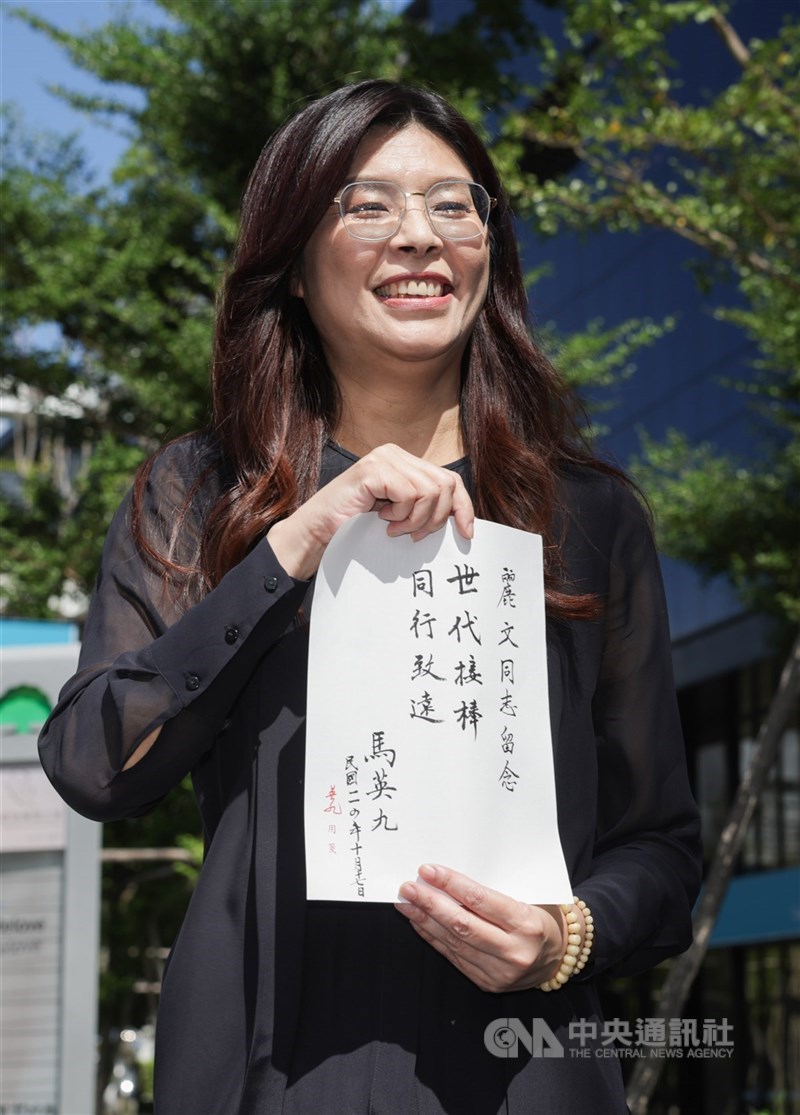 麗文同志留念
世代接棒
同行致遠
馬英九
民國一一四年十月十七日
英九用箋
CNA 中央通訊社
THE CENTRAL NEWS AGENCY